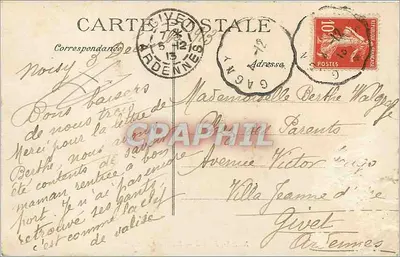 CARTE POSTALE
Correspondance
Adresse
GIVET
5-12
13
ARDENNES
GAGNY
10
POSTES
Noisy 3 Dec
Bons baisers
de nous trois
Merci pour la lettre de
Berthe, nous avons
été contents de savoir
maman rentrée à bon
port. Je n'ai pas encore
retrouvé ses gants,
c'est comme la clef
de valise
Mademoiselle Berthe
chez ses Parents
Avenue Victor Hugo
Villa Jeanne d'Arc
Givet
Ardennes
CPAPHIL